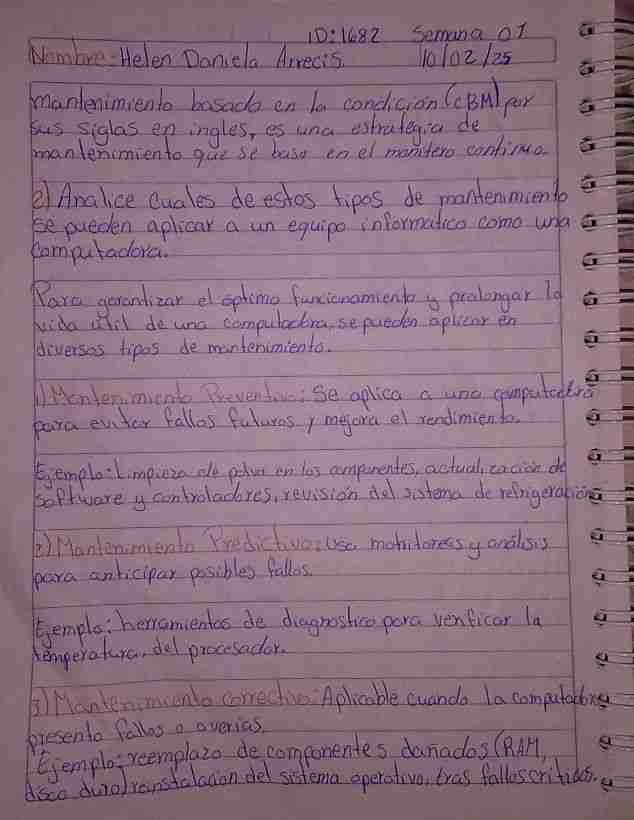 ID:1682 Semana 01
Nombre: Helen Daniela Arrecis. 10/02/25
mantenimiento basado en la condición (CBM) por
sus siglas en ingles, es una estrategia de
mantenimiento que se basa en el monitero continuo.
2) Analice cuales de estos tipos de mantenimiento
se pueden aplicar a un equipo informatico como una
computadora.
Para garantizar el óptimo funcionamiento y prolongar la
vida útil de una computadora, se pueden aplicar en
diversos tipos de mantenimiento.
1) Mantenimiento Preventivo: Se aplica a una computadora
para evitar fallos futuros y mejora el rendimiento.
Ejemplo: Limpieza de polvo en los componentes, actualización de
software y controladores, revisión del sistema de refrigeración
2) Mantenimiento Predictivo: Usa monitoreas y análisis
para anticipar posibles fallos.
Ejemplo: herramientas de diagnostico para verificar la
temperatura del procesador.
3) Mantenimiento correctivo: Aplicable cuando la computadora
presenta fallos o averias.
Ejemplo: reemplazo de componentes dañados (RAM,
disco duro) reinstalación del sistema operativo, tras fallos criticos.